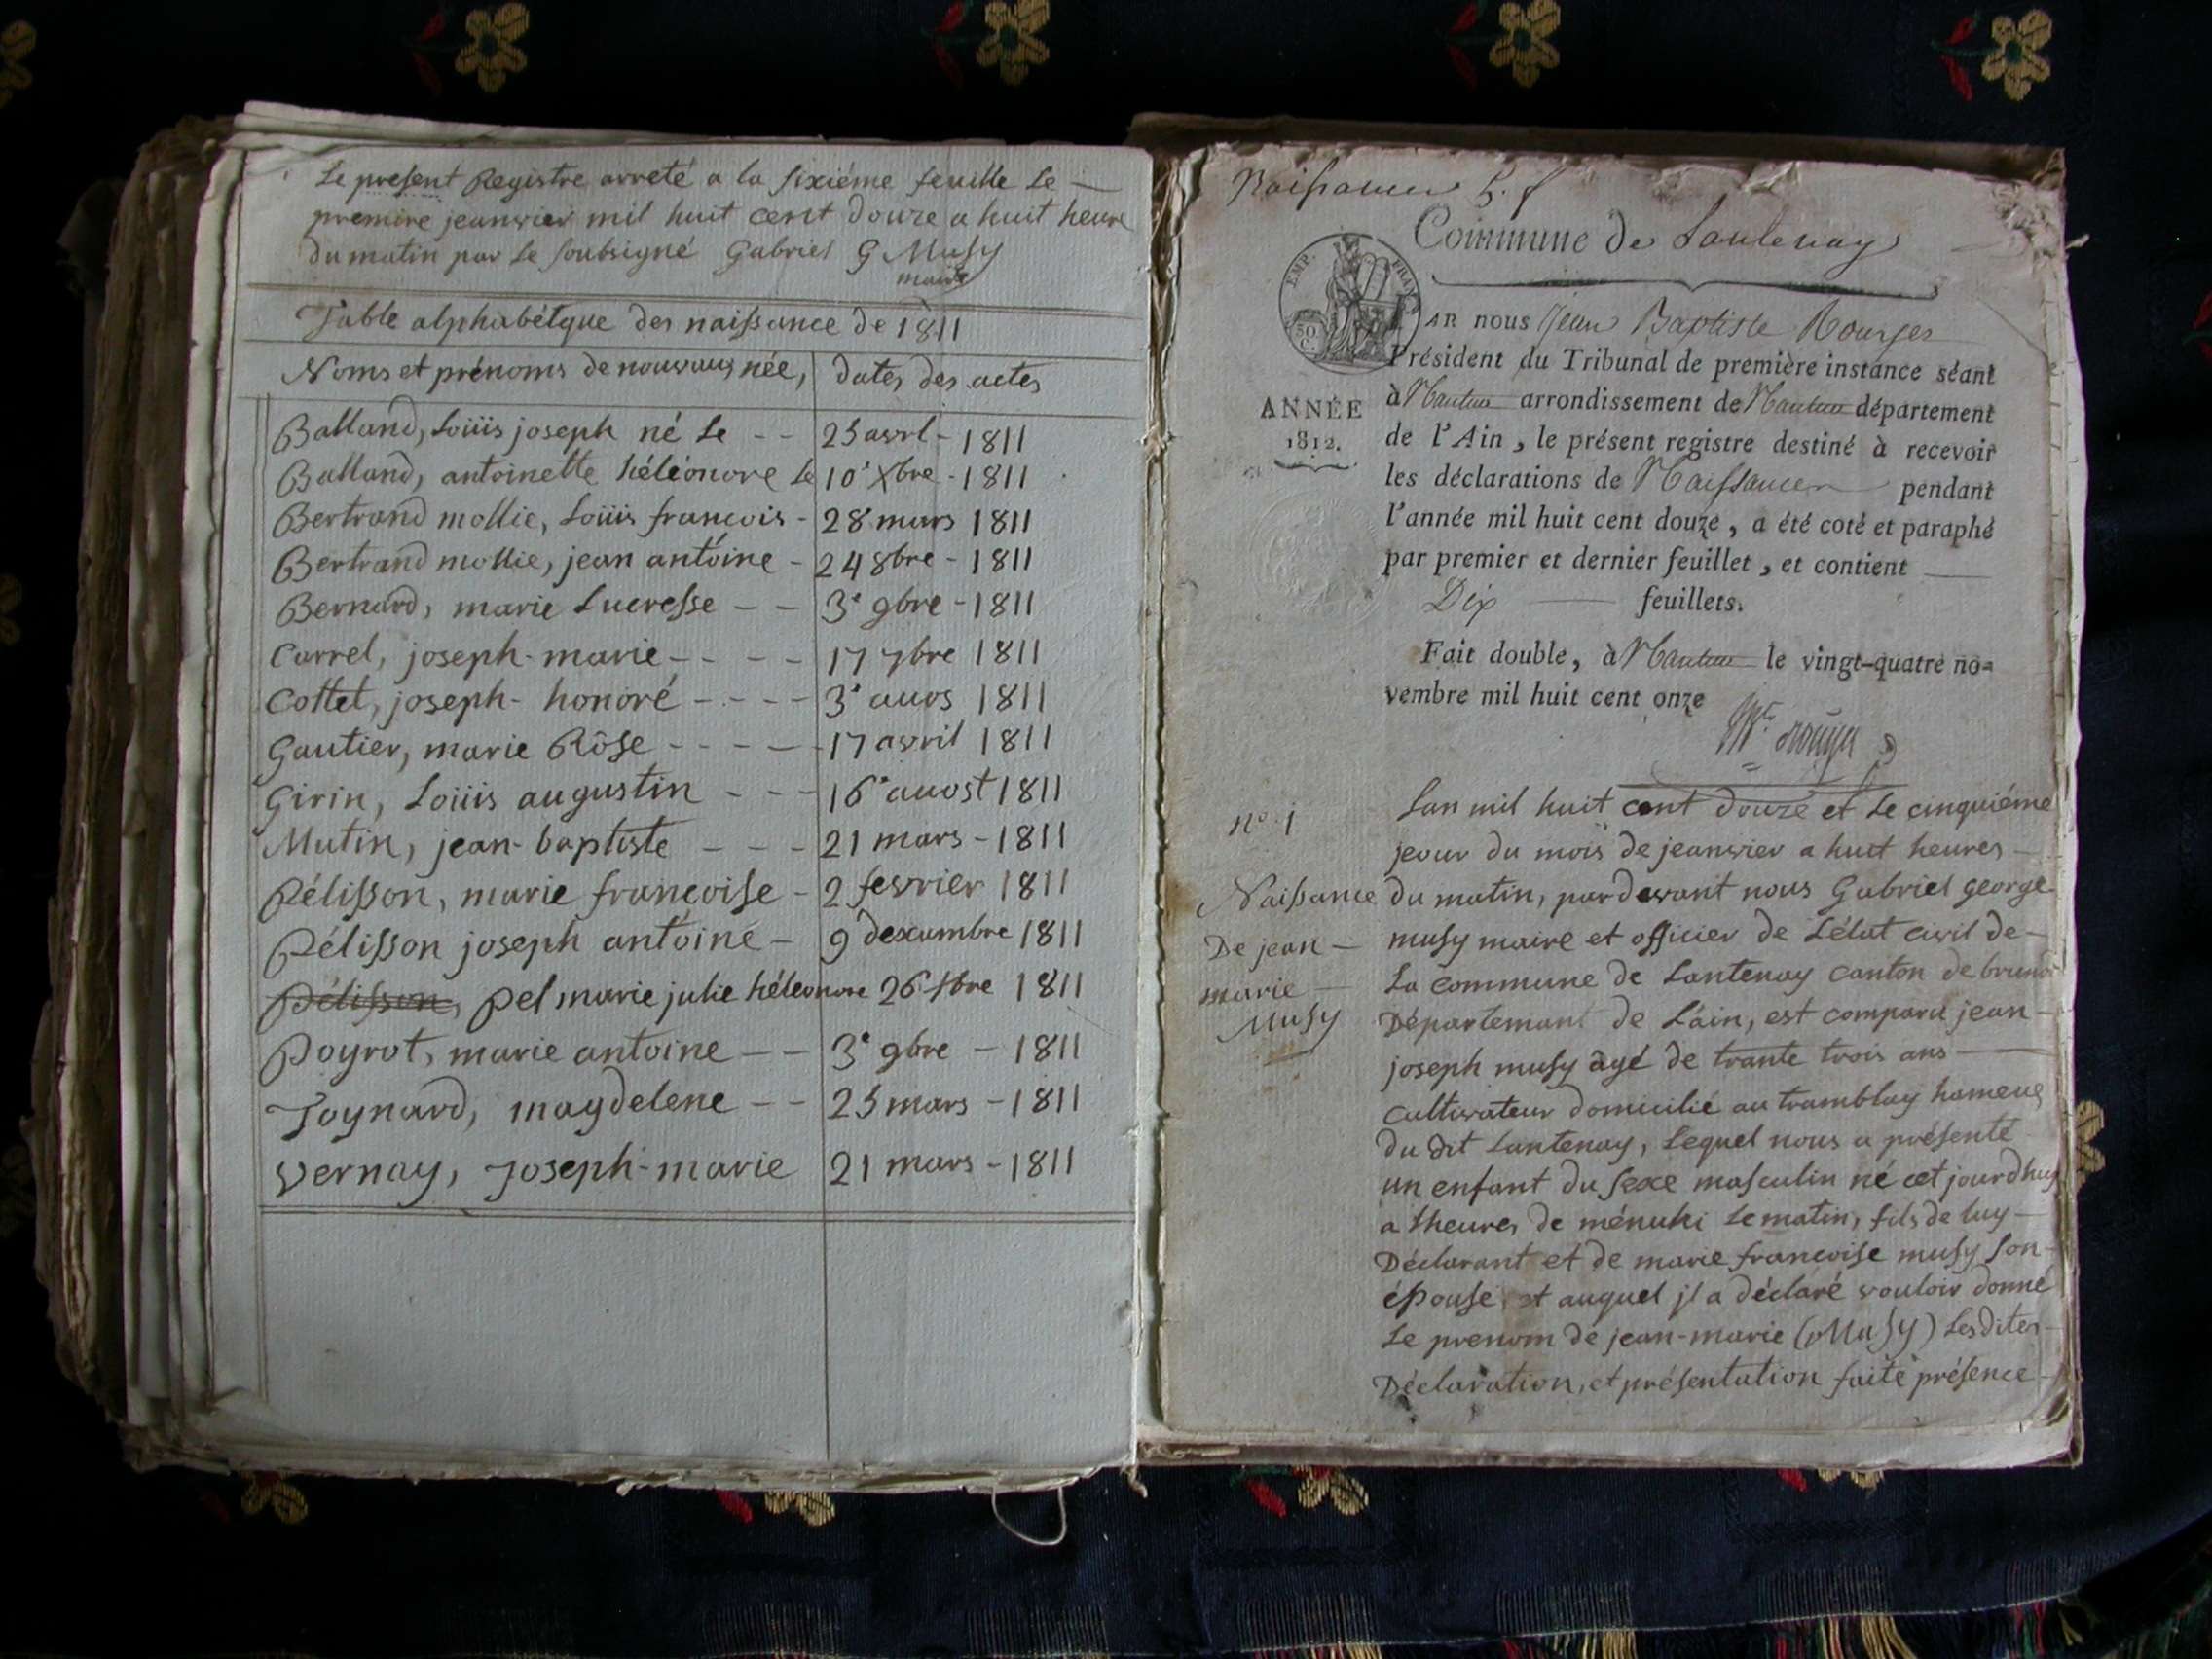 Le present Registre arreté a la sixiéme feuille Le
premire jeanvier mil huit cent douze a huit heure
du matin par Le soubsigné Gabriel G Musy
maire
Table alphabétque des naissance de 1811
Noms et prénoms de nouvaux née, dates des actes
Balland, Loüis joseph né Le -- 25 avrl - 1811
Balland, antoinette héléonore Le 10e Xbre - 1811
Bertrand mollie, Loüis francois - 28 mars 1811
Bertrand mollie, jean antoine - 24 8bre - 1811
Bernard, marie Lucresse -- 3e 9bre - 1811
Carrel, joseph-marie ---- 17 7bre 1811
Cottet, joseph-honoré ---- 3e auos 1811
Gautier, marie Rôse ---- 17 avril 1811
Girin, Loüis augustin --- 16e auost 1811
Mutin, jean-baptiste --- 21 mars - 1811
Pélisson, marie francoise - 2 fevrier 1811
Pélisson joseph antoine - 9 dexambre 1811
Pélisson, pel marie julie héléonore 26 1811
Poyrot, marie antoine -- 3e 9bre - 1811
Joynard, magdelene -- 25 mars - 1811
Vernay, Joseph-marie 21 mars - 1811
Naissances
Commune de Lantenay
EMP. FRAN.
50 C.
PAR nous Jean Baptiste Rouyer
Président du Tribunal de première instance séant
à Nantua arrondissement de Nantua département
ANNÉE
1812.
de l'Ain, le présent registre destiné à recevoir
les déclarations de Naissances pendant
l'année mil huit cent douze, a été coté et paraphé
par premier et dernier feuillet, et contient
Dix feuillets.
Fait double, à Nantua le vingt-quatre no=
vembre mil huit cent onze
Rouyer
n° 1
Naissance
De jean -
marie -
Musy
Lan mil huit cent douze et Le cinquiéme
jeour du mois de jeanvier a huit heures -
du matin, pardevant nous Gabriel george
musy maire et officier de L'état civil de -
La commune de Lantenay canton de brunod
Département de L'ain, est comparu jean -
joseph musy âgé de trante trois ans -
cultivateur domicilié au tramblay hameux
du dit Lantenay, Lequel nous a présenté
un enfant du sexe masculin né cet jourdhuy
a heures de ménuhi Le matin, fils de luy -
Déclarant et de marie francoise musy son -
épouse, et auquel jl a déclaré vouloir donné
Le prenom de jean-marie (Musy) Lesdites -
Déclaration, et présentation faite présence -